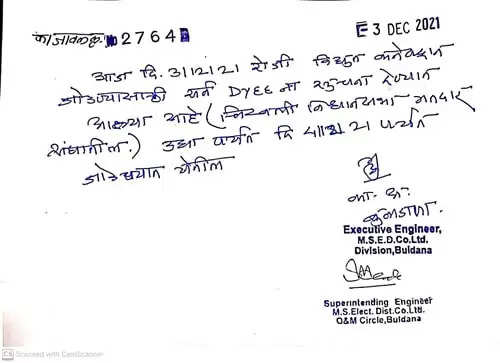 का.जा.क्र. 02764
3 DEC 2021
आज दि. 3/12/21 रोजी विद्युत कनेक्शन
जोडण्यासाठी सर्व DYEE ना सुचना देण्यात
आल्या आहे (चिखली विधानसभा मतदार
संघातील.) उद्या पर्यंत दि 4/12/21 पर्यंत
जोडण्यात येतील
का. अ.
बुलडाणा.
Executive Engineer,
M.S.E.D.Co.Ltd.
Division,Buldana
Superintending Engineer
M.S.Elect. Dist.Co.Ltd.
O&M Circle,Buldana
CS Scanned with CamScanner